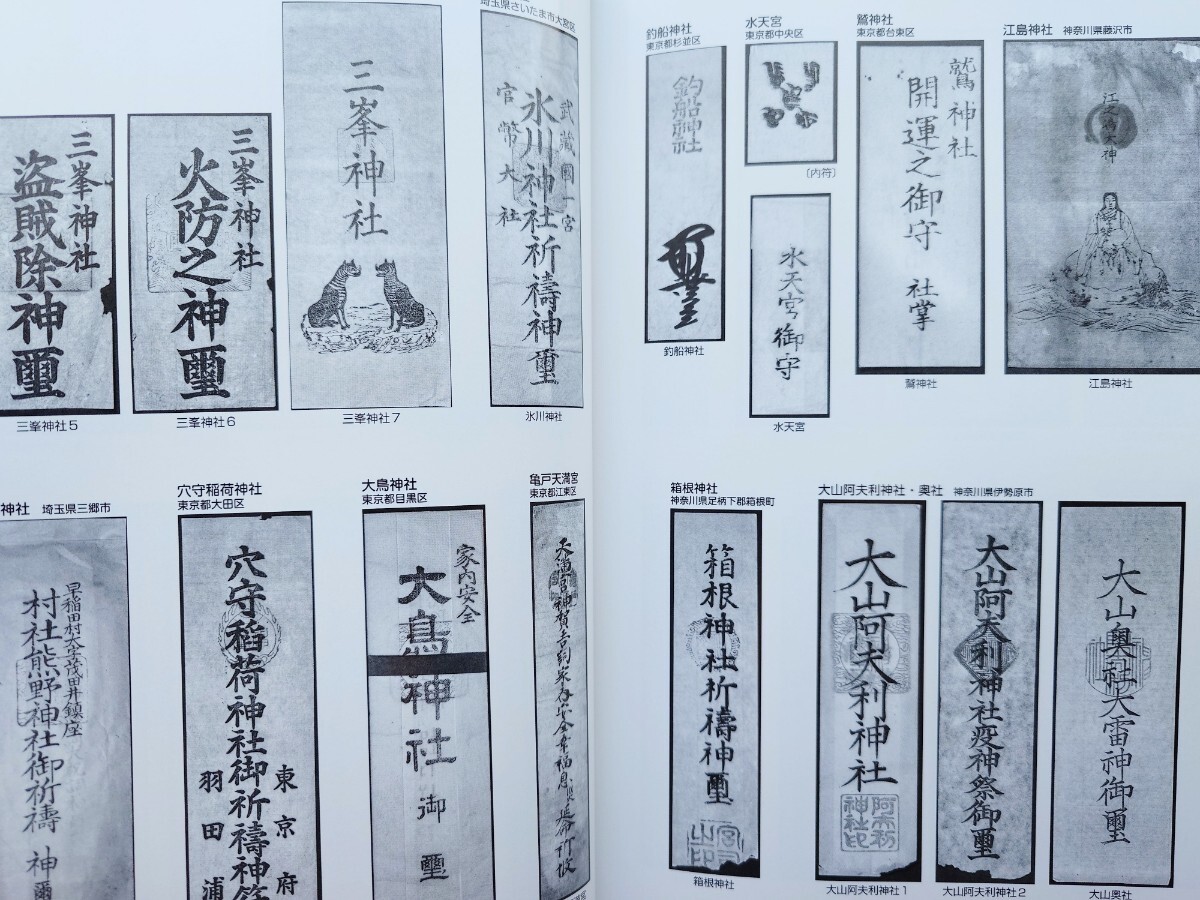 三峯神社
盗賊除神璽
三峯神社5
三峯神社
火防之神璽
三峯神社6
三峯神社
三峯神社7
埼玉県さいたま市大宮区
武蔵國一宮
氷川神社祈禱神璽
官幣大社
氷川神社
釣船神社
東京都杉並区
釣船神社
釣船神社
水天宮
東京都中央区
〔内符〕
水天宮御守
水天宮
鷲神社
東京都台東区
鷲神社
開運之御守
社掌
鷲神社
江島神社 神奈川県藤沢市
江之島大神
江島神社
神社 埼玉県三郷市
早稲田村大字茂田井鎮座
村社熊野神社御祈禱神璽
穴守稲荷神社
東京都大田区
穴守稲荷神社御祈禱神
東京府
羽田浦
大鳥神社
東京都目黒区
家内安全
大鳥神社御璽
亀戸天満宮
東京都江東区
箱根神社
神奈川県足柄下郡箱根町
箱根神社祈禱神璽
箱根神社
大山阿夫利神社・奥社 神奈川県伊勢原市
大山阿夫利神社
阿夫利神社印
大山阿夫利神社1
大山阿夫利神社疫神祭御璽
大山阿夫利神社2
大山奥社大雷神御璽
大山奥社